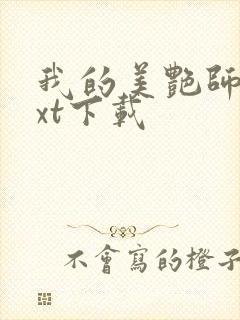 我的美艷師
xt下載
不會寫的橙子